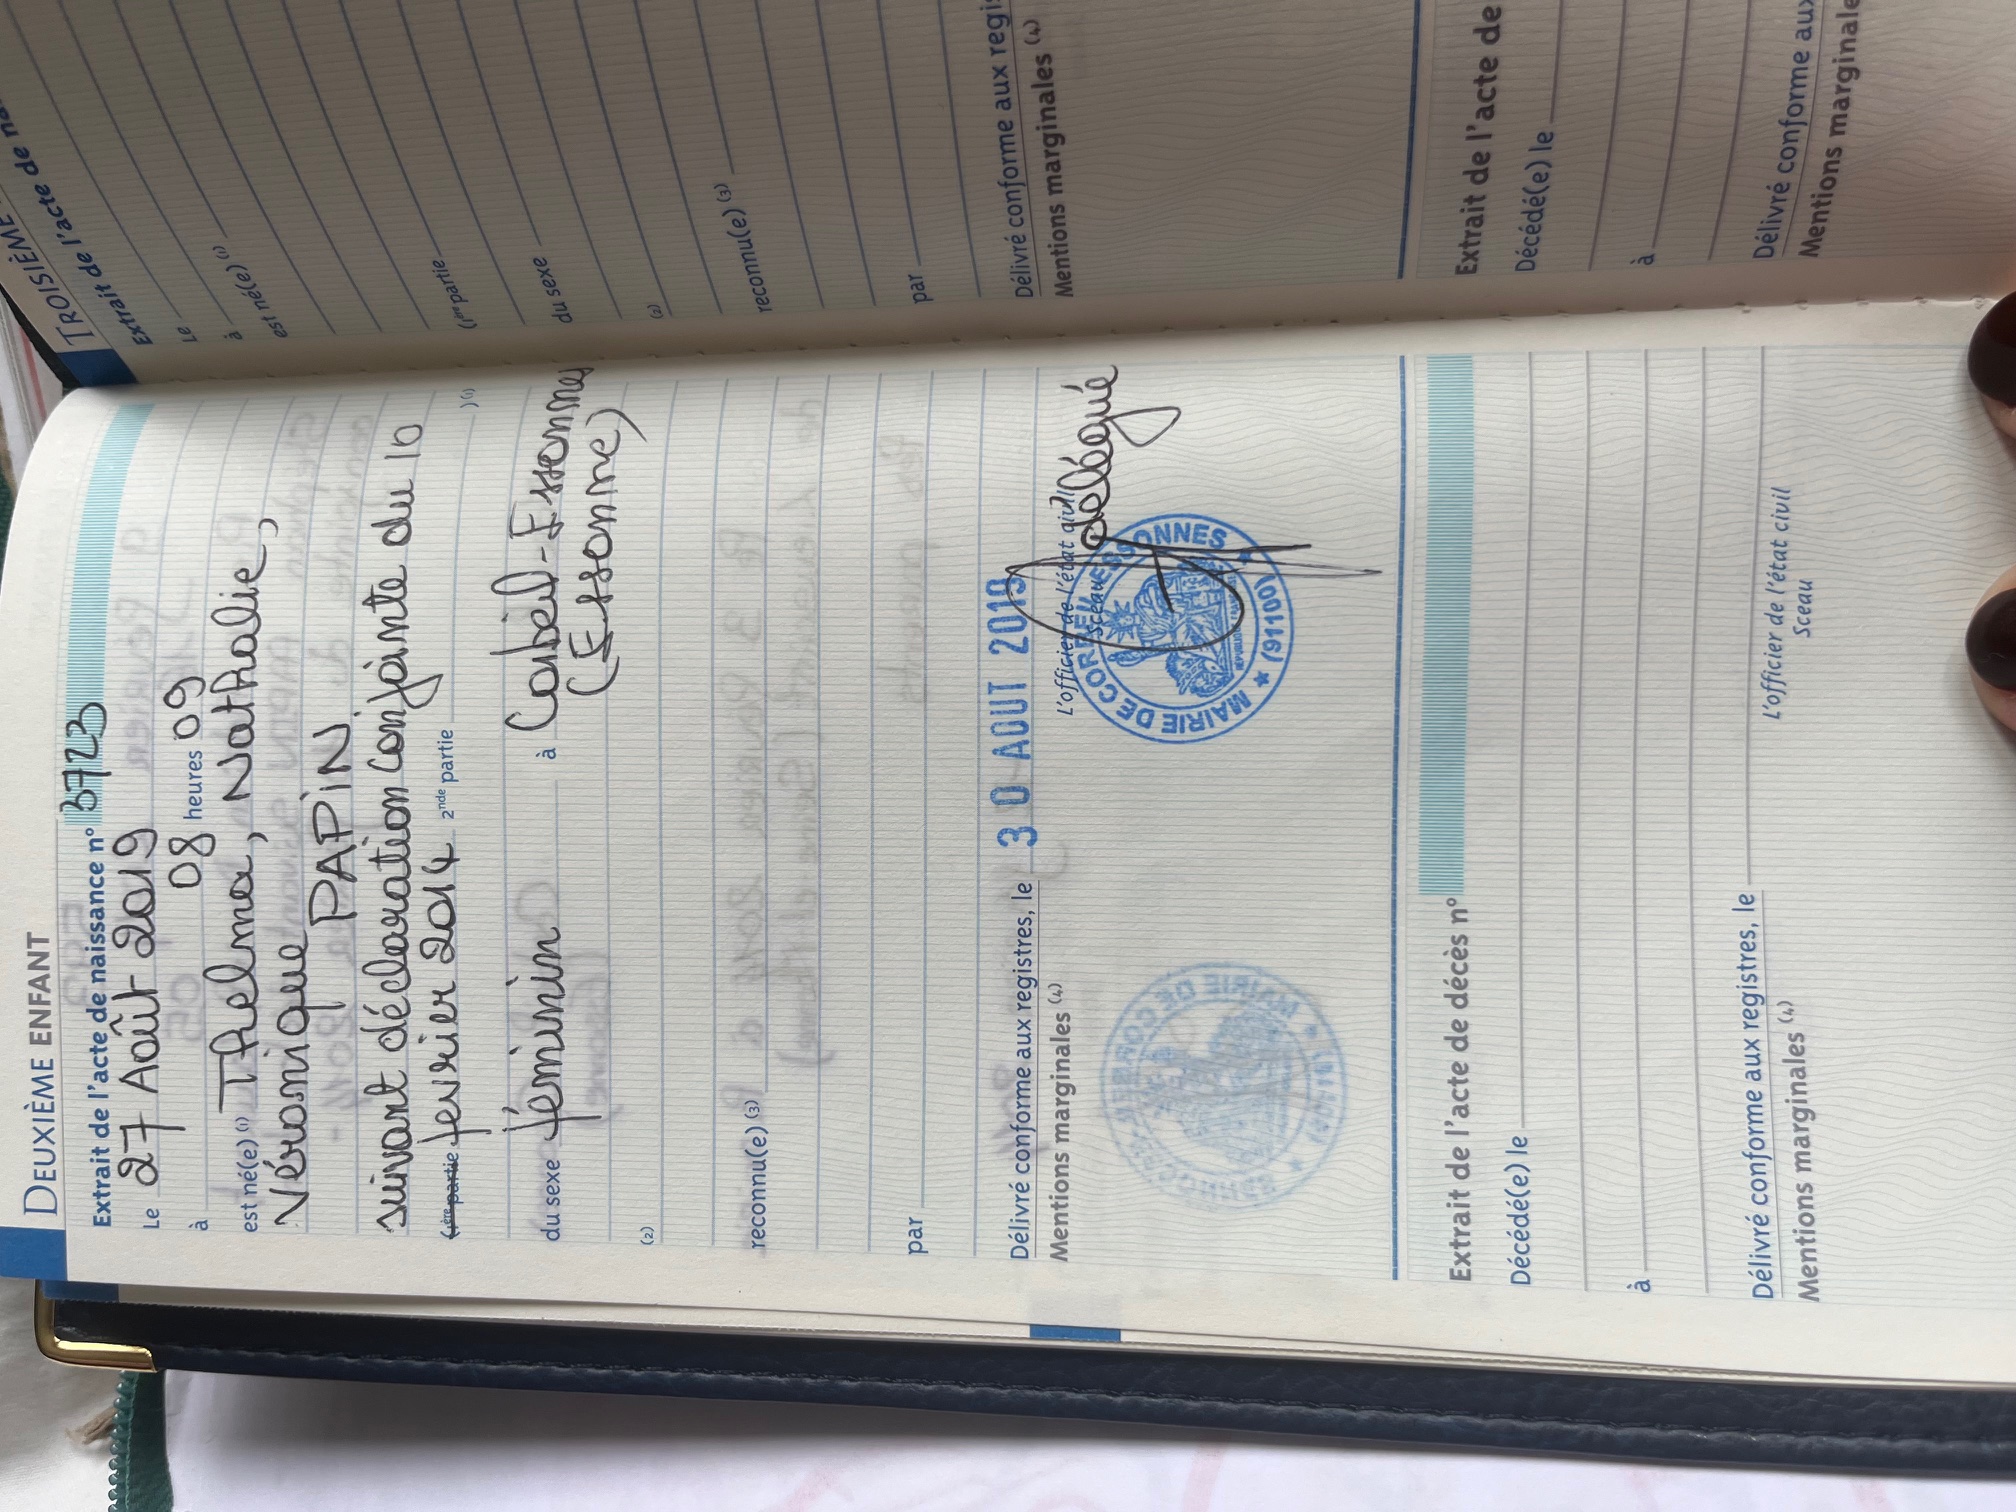 DEUXIÈME ENFANT
Extrait de l'acte de naissance n° 3723
Le 27 Août 2019
à 08 heures 09
est né(e) (1) Thelma, Nathalie,
Véronique
PAPIN
suivant déclaration conjointe du 10
(1ère partie fevrier 2014 2nde partie )(1)
du sexe féminin à Corbeil-Essonnes
(Essonne)
(2)
reconnu(e) (3)
par
Délivré conforme aux registres, le 30 AOUT 2019
Mentions marginales (4)
L'officier de l'état civil
Sceau
délégué
MAIRIE DE CORBEIL-ESSONNES
(91100)
Extrait de l'acte de décès n°
Décédé(e) le
à
Délivré conforme aux registres, le
Mentions marginales (4)
L'officier de l'état civil
Sceau
TROISIÈME
Extrait de l'acte de na
Le
à
est né(e) (1)
(1ère partie
du sexe
(2)
reconnu(e) (3)
par
Délivré conforme aux regis
Mentions marginales (4)
Extrait de l'acte de
Décédé(e) le
à
Délivré conforme aux
Mentions marginale